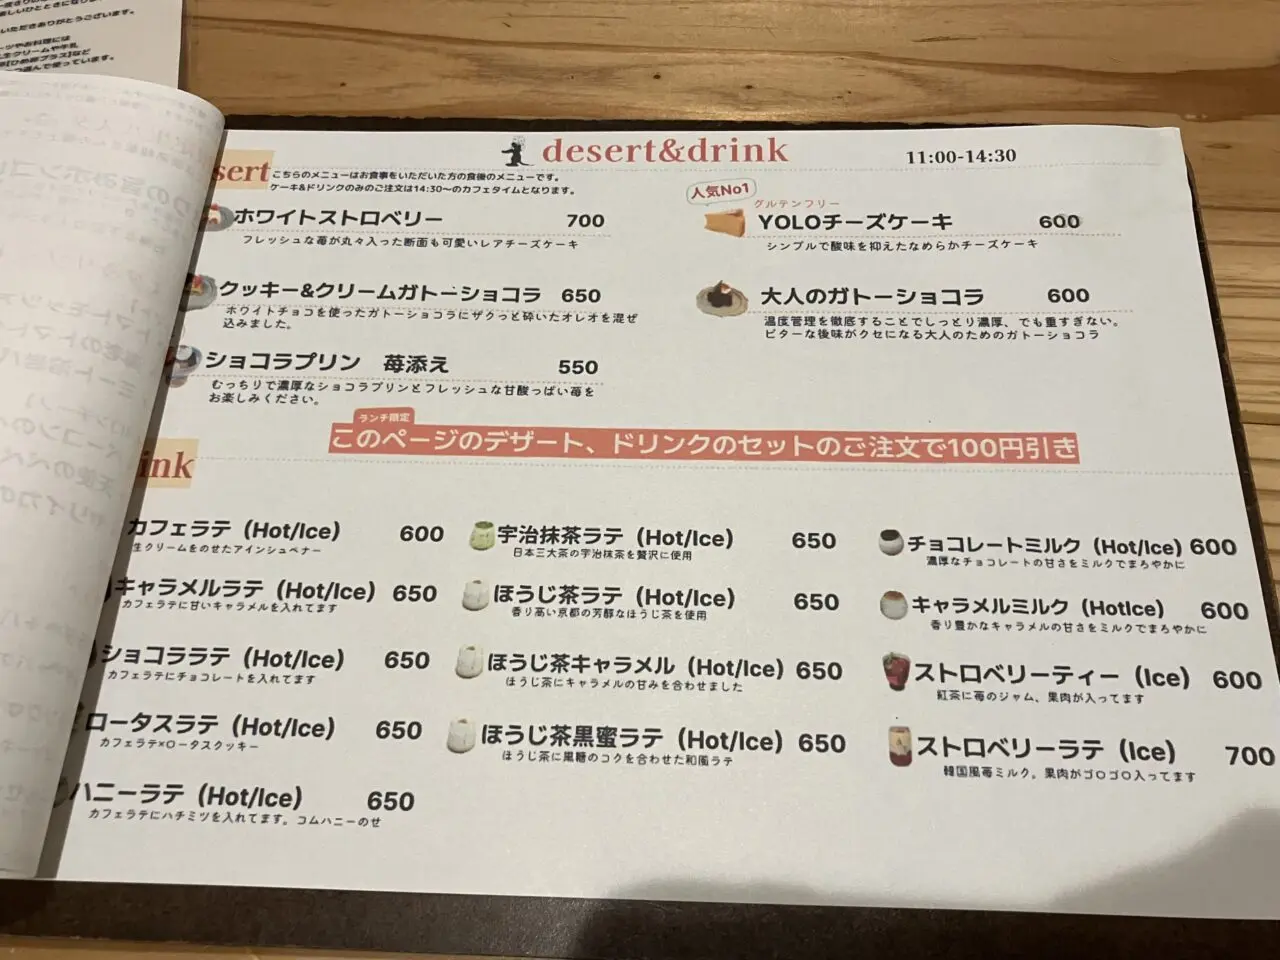 いただきありがとうございます。
desert&drink
11:00-14:30
sert
こちらのメニューはお食事をいただいた方の食後のメニューです。
ケーキ&ドリンクのみのご注文は14:30〜のカフェタイムとなります。
ホワイトストロベリー 700
フレッシュな苺が丸々入った断面も可愛いレアチーズケーキ
人気No1
グルテンフリー
YOLOチーズケーキ 600
シンプルで酸味を抑えたなめらかチーズケーキ
クッキー&クリームガトーショコラ 650
ホワイトチョコを使ったガトーショコラにザクっと砕いたオレオを混ぜ
込みました。
大人のガトーショコラ 600
温度管理を徹底することでしっとり濃厚、でも重すぎない。
ビターな後味がクセになる大人のためのガトーショコラ
ショコラプリン 苺添え 550
むっちりで濃厚なショコラプリンとフレッシュな甘酸っぱい苺を
お楽しみください。
ランチ限定
このページのデザート、ドリンクのセットのご注文で100円引き
ink
カフェラテ（Hot/Ice） 600
生クリームをのせたアインシュペナー
キャラメルラテ（Hot/Ice） 650
カフェラテに甘いキャラメルを入れてます
ショコララテ（Hot/Ice） 650
カフェラテにチョコレートを入れてます
ロータスラテ（Hot/Ice） 650
カフェラテ×ロータスクッキー
ハニーラテ（Hot/Ice） 650
カフェラテにハチミツを入れてます。コムハニーのせ
宇治抹茶ラテ（Hot/Ice） 650
日本三大茶の宇治抹茶を贅沢に使用
ほうじ茶ラテ（Hot/Ice） 650
香り高い京都の芳醇なほうじ茶を使用
ほうじ茶キャラメル（Hot/Ice） 650
ほうじ茶にキャラメルの甘みを合わせました
ほうじ茶黒蜜ラテ（Hot/Ice） 650
ほうじ茶に黒糖のコクを合わせた和風ラテ
チョコレートミルク（Hot/Ice） 600
濃厚なチョコレートの甘さをミルクでまろやかに
キャラメルミルク（HotIce） 600
香り豊かなキャラメルの甘さをミルクでまろやかに
ストロベリーティー（Ice） 600
紅茶に苺のジャム、果肉が入ってます
ストロベリーラテ（Ice） 700
韓国風苺ミルク。果肉がゴロゴロ入ってます